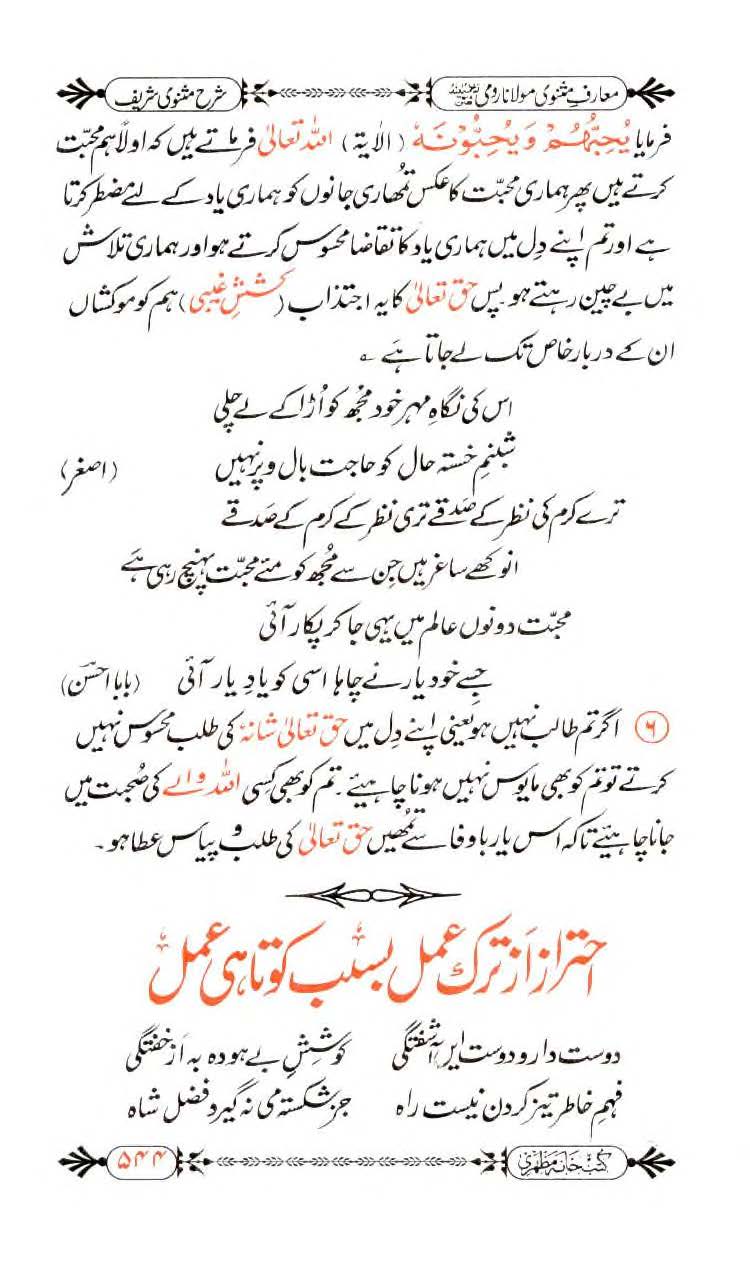 معارفِ مثنوی مولانا رومی رحمۃ اللہ علیہ
شرح مثنوی شریف
فرمایا یُحِبُّہُمْ وَ یُحِبُّوْنَہٗ (الآیۃ) اللہ تعالیٰ فرماتے ہیں کہ اولاً ہم محبّت
کرتے ہیں پھر ہماری محبّت کا عکس تمُھاری جانوں کو ہماری یاد کے لئے مضطر کرتا
ہے اور تم اپنے دِل میں ہماری یاد کا تقاضا محسوس کرتے ہو اور ہماری تلاش
میں بے چین رہتے ہو۔ پس حق تعالیٰ کا یہ اجتذاب (کششِ غیبی) ہم کو موکشاں
ان کے دربار خاص تک لے جاتا ہَے ؎
اس کی نگاہِ مہر خود مجُھ کو اُڑا کے لے چلی
شبنمِ خستہ حال کو حاجت بال و پر نہیں (اصغر)
ترے کرم کی نظر کے صَدقے تری نظر کے کرم کے صَدقے
انوکھے ساغر ہیں جِن سے مجُھ کو مئے محبّت پہنچ رہی ہَے
محبّت دونوں عالم میں یہی جا کر پکار آئی
جسے خود یار نے چاہا اسی کو یادِ یار آئی (بابا احسن)
۶ اگر تم طالب نہیں ہو یعنی اپنے دِل میں حق تعالیٰ شانہٗ کی طلب محسوس نہیں
کرتے تو تم کو بھی مایوس نہیں ہونا چاہیئے۔ تم کو بھی کسِی اللہ والے کی صُحبت میں
جانا چاہیئے تاکہ اس یار باوفا سے تمُھیں حق تعالیٰ کی طلب و پیاس عطا ہو۔
احتراز اَز ترکِ عمل بسبب کوتاہی عمل
دوست دارد دوست ایں آشفتگی کوشِشِ بے ہودہ بہ اَز خفتگی
فہم خاطر تیز کردن نیست راہ جز شکستہ می نہ گیرد فضل شاہ
کتب خانہ مظہری
۵۴۴